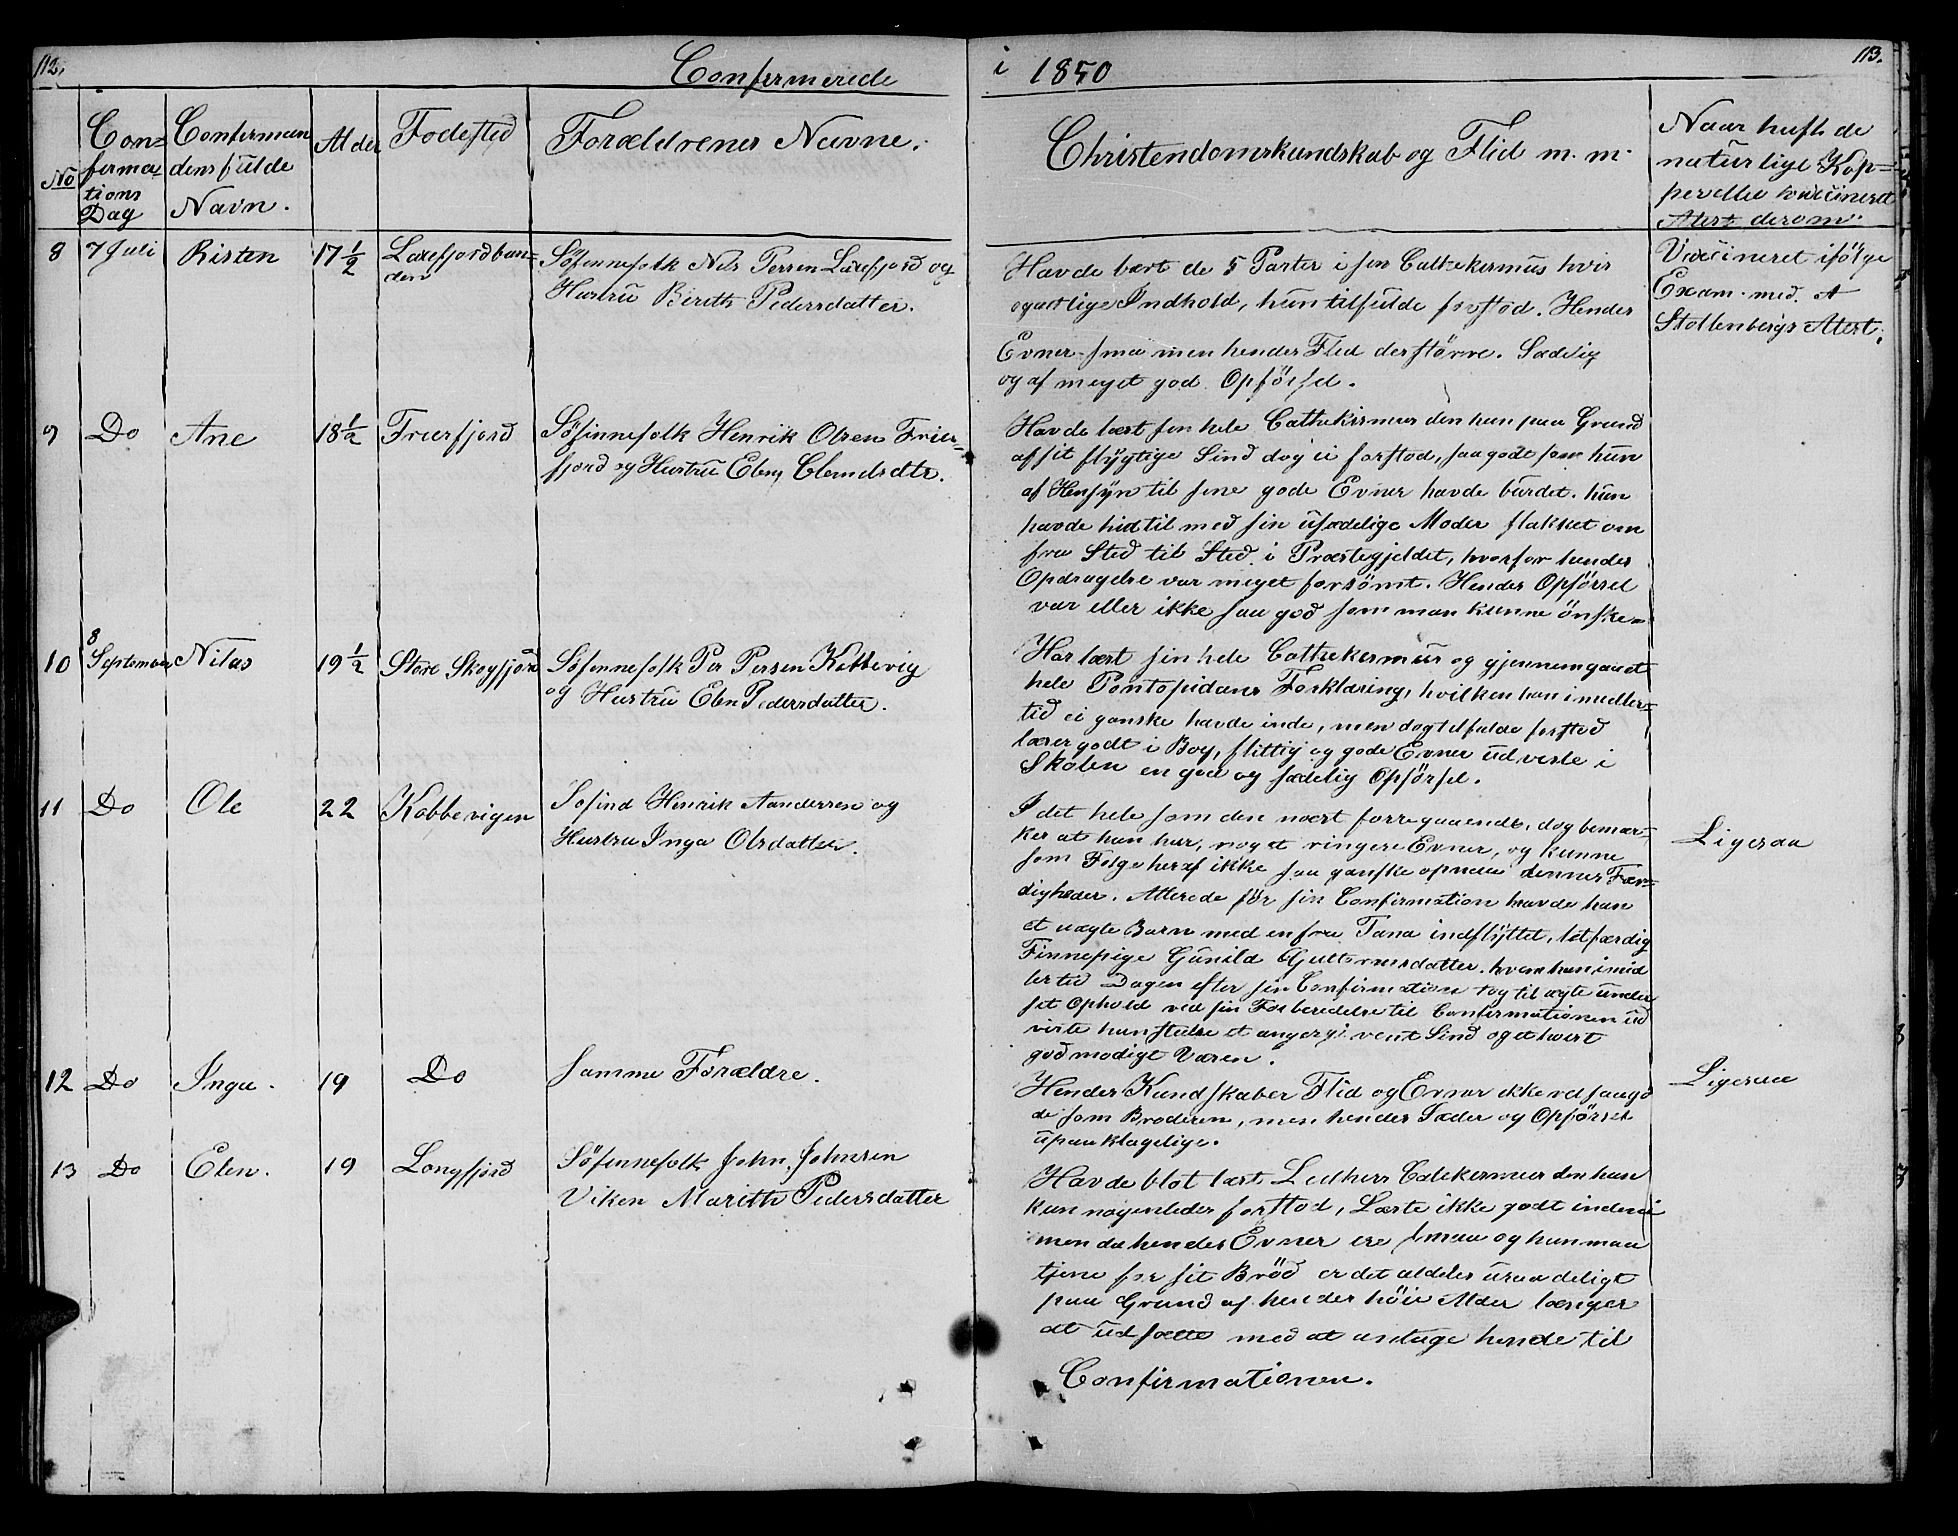 112.
Confermerede
i 1850
113.
No
Con=
ferma
tions
Dag
Conferman
dens fulde
Navn.
Alder
Fødested
Forældrenes Navne.
Christendomskundskab og Flid m. m.
Naar hafft de
naturlige Kop=
per eller vaccineret
Atest derom.
8 7 Juli Risten 17 1/2 Laxefjordbun=
den
Søfinnefolk Nils Persen Laxefjord og
Hustru Bereth Pedersdatter.
Havde lært de 5 Parter i sin Cathekismus hvis
egentlige Indhold, hun tilfulde forstod. Hendes
Evner smaa men hendes Flid des større. Sædelig
og af meget god Opførsel.
Vaccineret ifølge
Exam. med. A
Stoltenbergs Atest.
9 Do Ane 18 1/2 Trierfjord
Søfinnefolk Henrik Olsen Trier=
fjord og Hustru Elen Clemetsdtr.
Havde lært sin hele Cathekismus den hun paa Grund
af sit flygtige Sind dog ei forstod, saa godt som hun
af Hensyn til sine gode Evner havde burdet. hun
havde hidtil med sin usædelige Moder flakket om
fra Sted til Sted i Præstegjeldet, hvorfor hendes
Opdragelse var meget forsømt. Hendes Opførsel
var eller ikke saa god som man kunne ønske=
10 8 September Nilas 19 1/2 Store Skogfjord
Søfinnefolk Per Persen Kobbevig
og Hustru Elen Pedersdatter.
Har lært sin hele Cathekismus og gjennemgaaet
hele Pontopidans Forklaring, hvilken han imidler=
tid ei ganske havde inde, men dog tilfulde forstod
læser godt i Bog, flittig og gode Evner udviste i
Skolen en god og sædelig Opførsel.
11 Do Ole 22 Kobbevigen
Søfind Henrik Aandersen og
Hustru Inga Olsdatter.
I det hele som den næst forregaaende, dog bemær=
kes at han har, noget ringere Evner, og kunne
som Følge heraf ikke saa ganske opnaa dennes Fær=
digheder. Allerede før sin Confirmation havde han
et uægte Barn med en fra Tana indflyttet, letfærdig
Finnepige Gunild Guttormsdatter. hvem han imid
lertid Dagen efter sin Confirmation tog til ægte under
sit Ophold ved sin Forberedelse til Confirmationen ud
viste han stedse et angergivent Sind og ethvert
godmodigt Væsen.
Ligesaa
12 Do Inga. 19 Do Samme Forældre.
Hendes Kundskaber Flid og Evner ikke ret saa go
de som Broderen, men hendes Sæder og Opførsel
upaaklagelige.
Ligesaa
13 Do Elen. 19 Langfjord
Søfinnefolk John Johnsen
Viken Marith Pedersdatter
Havde blot lært Luthers Catekismus den hun
kun nogenledes forstod, Læste ikke godt indeni
men da hendes Evner ere smaa og hun maa
tjene for sit Brød er det aldeles uraadeligt
paa Grund af hendes høie Alder længer
at udsætte med at antage hende til
Confirmationen.